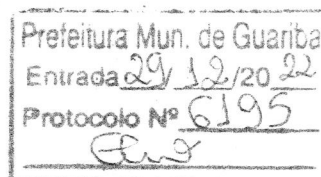 Prefeitura Mun. de Guariba
Entrada 29/12/2022
Protocolo Nº 6195